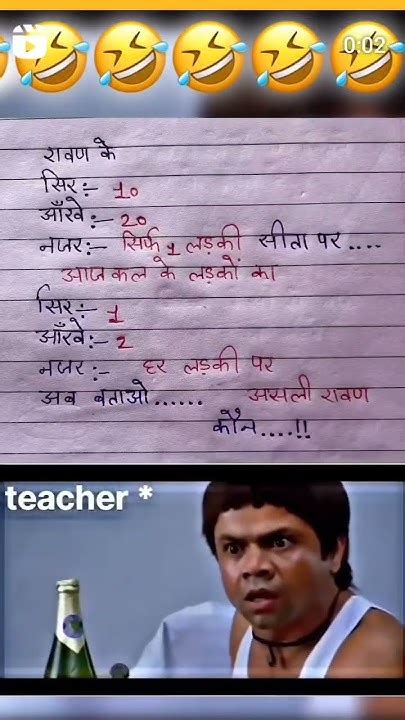 0:02
रावण के
सिर:- 10
आँखे:- 20
नजर:- सिर्फ 1 लड़की सीता पर ....
आजकल के लड़कों का
सिर:- 1
आँखे:- 2
नजर:- हर लड़की पर
अब बताओ...... असली रावण
कौन....!!
teacher *